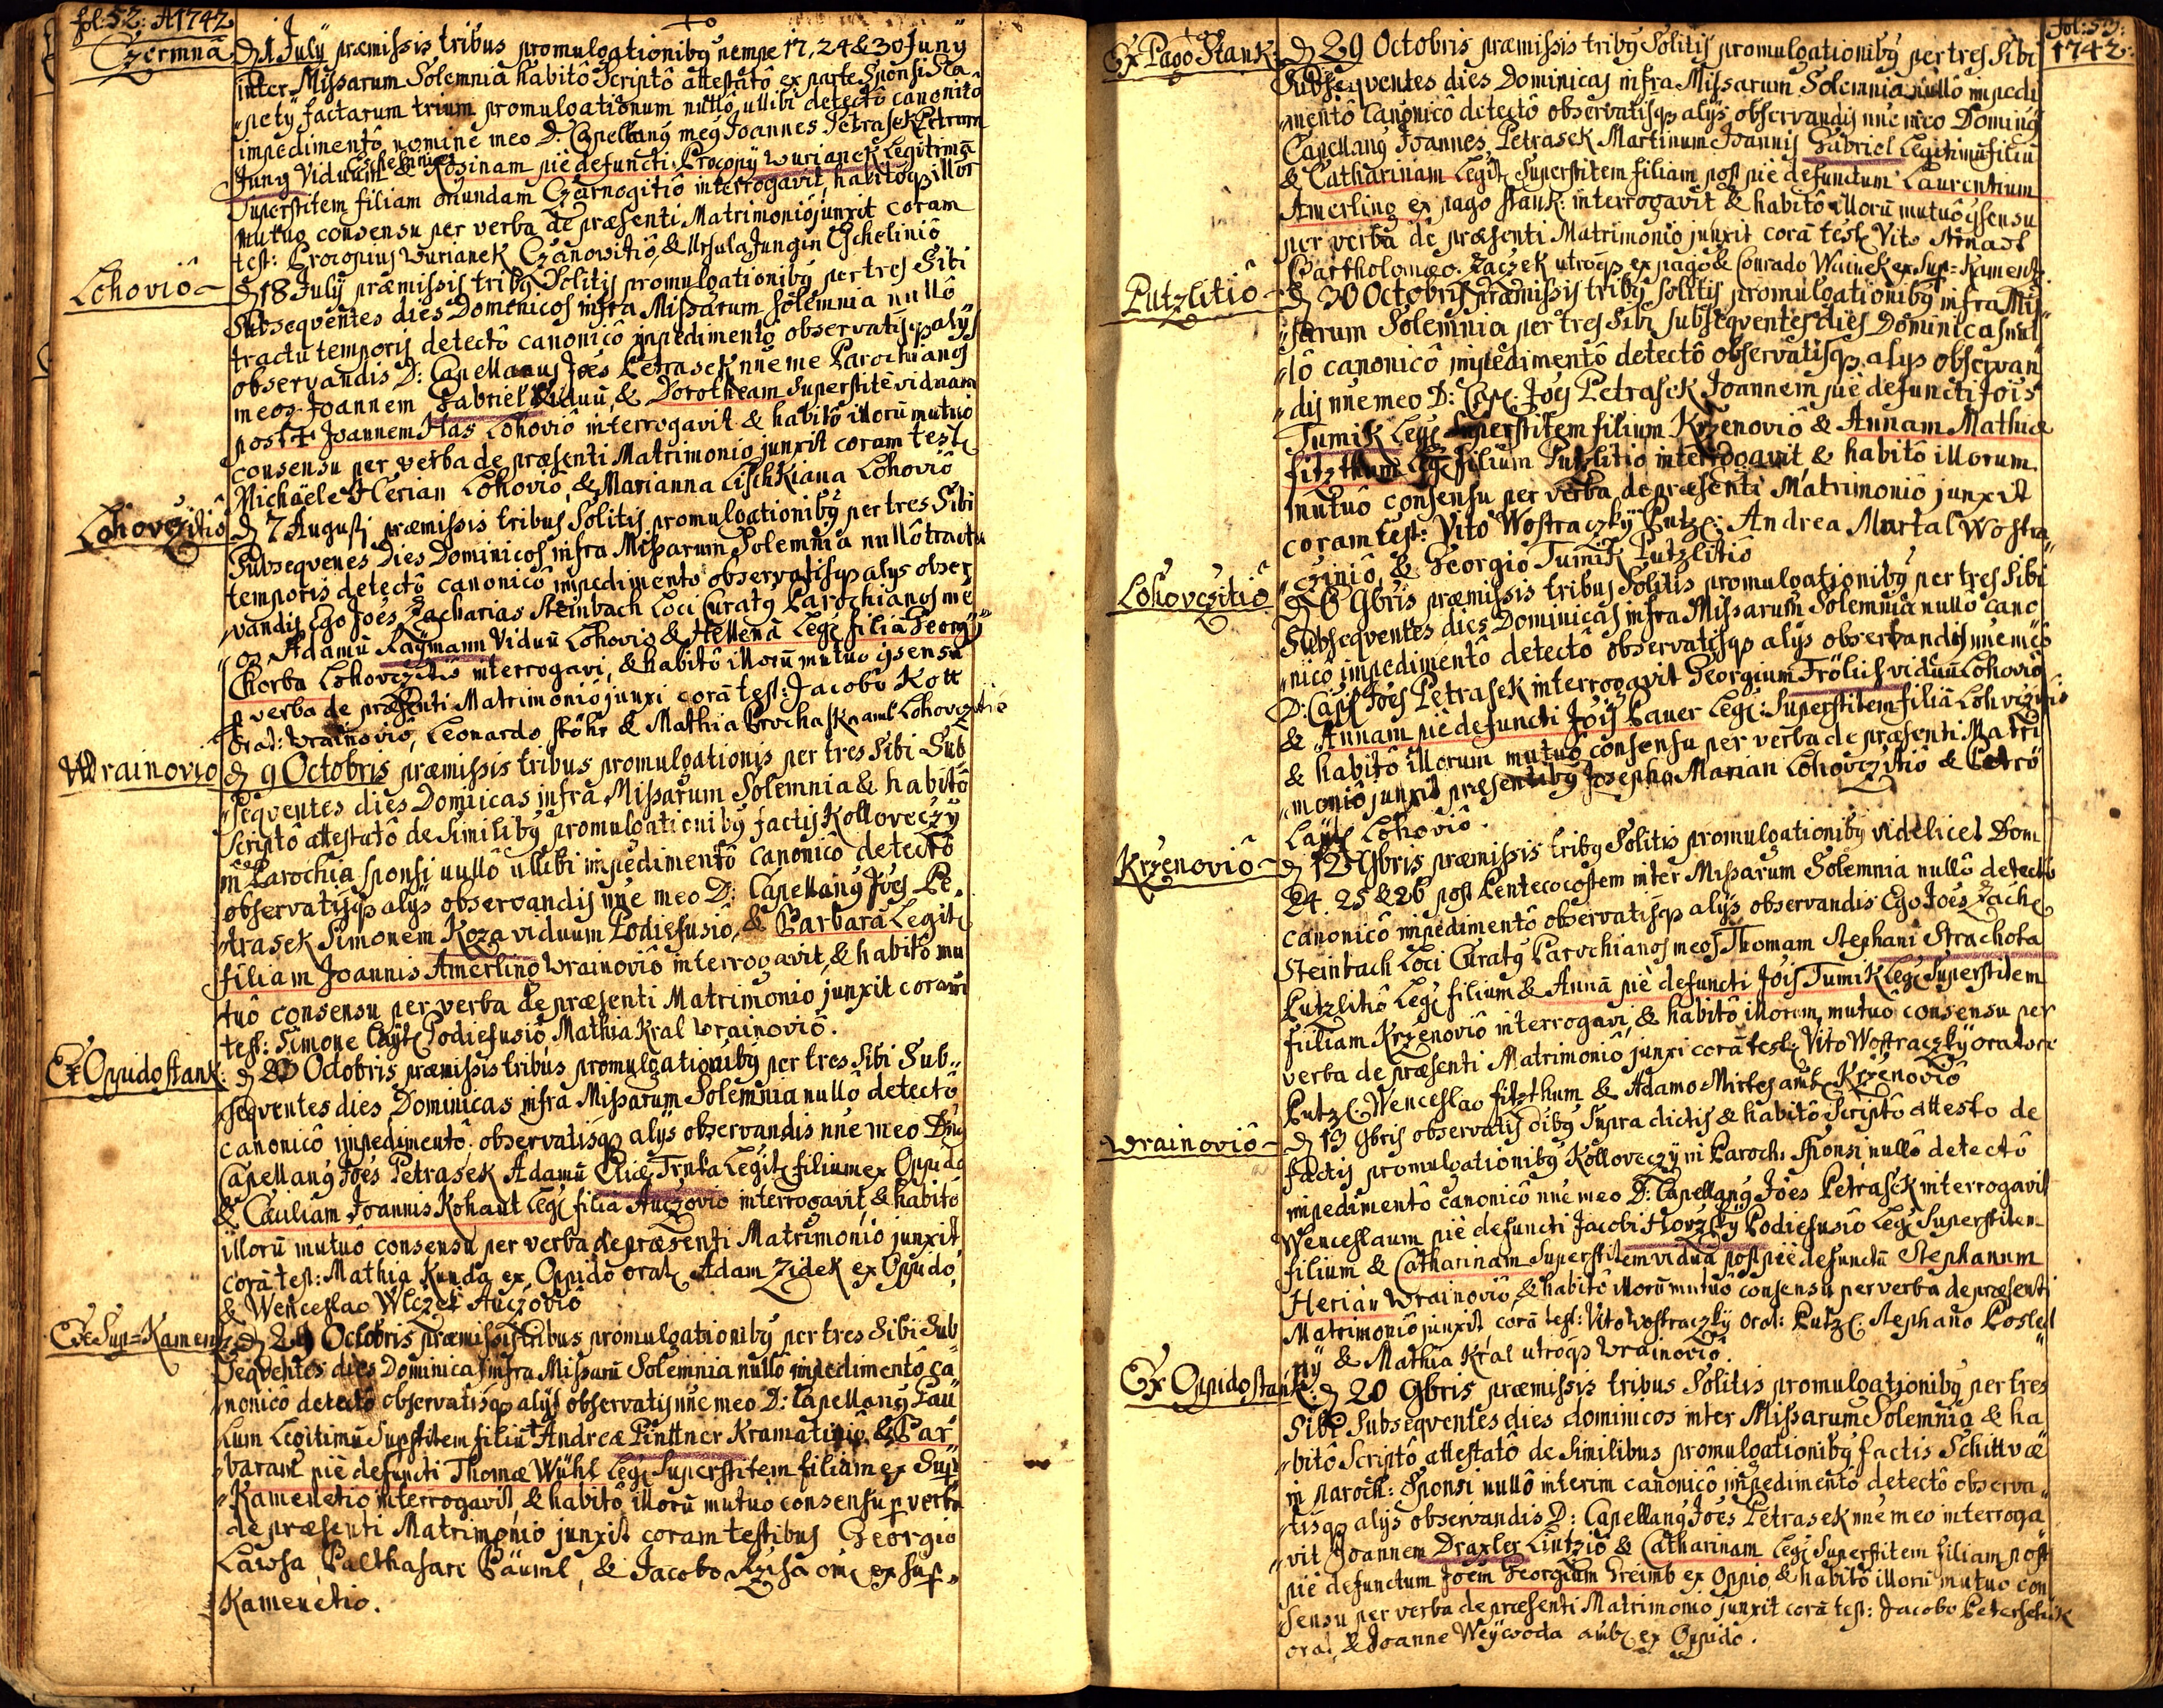 fol: 52: A1742
Czermnâ
D 1 July præmissis tribus promulgationibg nempe 17, 24 & 30 Juny
inter Missarum Solemnia habitô Scriptô attestato ex parte Sponsi Sta
"pety factarum trium promulgationum nullô ullibi detectô canonicô
impedimentô nomine meo D: Capellang meg Joannes Petrasek Petrum
Jung Viduum & Rosinam piè defuncti Procopij Wurianek Legitimã
Superstitem filiam oriundam Czarnogitiô interrogavit, habitoqз illor
mutuo consensu per verba de præsenti Matrimoniô junxit coram
test: Procopius Wurianek Czernowitiô, & Ursula Jungin Escheliniô
Lohoviô
D 18 July præmissis tribg Solitis promulgationibg per tres Sibi
Subseqventes dies Domenicos infra Missarum Solemnia nullô
tractu temporis detectô canonicô impedimentô observatisqз alys
observandis D: Capellanus Joes Petrasek nne me Parochianos
meos Joannem Gabriel Viduũ, & Dorotheam Superstitẽ viduam
post + Joannem Has Lohoviô interrogavit & habitô illorũ mutuo
consensu per verba de præsenti Matrimonio junxit coram test
Michaële Herian Lohoviô, & Marianna Lischkiana Lohoviô
Lohovczitiô
D 7 Augusti præmissis tribus Solitis promulgationibg per tres Sibi
Subseqvenes Dies Dominicos infra Missarum Solemnia nullô tractu
temporis detectô canonicô impedimentô observatisqз alys obser
"vandis Ego Joes Zacharias Steinbach Loci Curatg Parochianos me
"os Adamũ Raymann Viduũ Lohovio & Hellenã Leg filiã Georgy
Chorba Lohovczitiô interrogavi, & habitô illorũ mutuo ɔsensu
p verba de præsenti Matrimoniô junxi corã test: Jacobo Kott
orat: Wrainoviô, Leonardo Stöhr & Mathia Prochaska amb Lohovczitiô
Wrainovio
D 9 Octobris præmissis tribus promulgationis per tres Sibi Sub
"seqventes dies Domiicas infra Missarum Solemnia & habitô
Scriptô attestatô de Similibg promulgationibg factis Kolloveczÿ
in Parochia Sponsi nullô ullibi impedimentô canonicô detectô
observatisqз alÿs observandis nne meo D: Capellang Joes Pe,
"trasek Simonem Koza viduum Podiefusiô, & Barbarã Legit
filiam Joannis Amerling Wrainoviô interrogavit, & habitô mu
tuô consensu per verba de præsenti Matrimonio junxit coram
test: Simone Caÿt Podiefusiô, Mathia Kral Wrainoviô.
Ex Oppido stank:
D 23 Octobris præmissis tribus promulgationibg per tres Sibi Sub"
"seqventes dies Dominicas infra Missarum Solemnia nullô detectô
canonicô impedimentô observatisqз alÿs observandis nne meo Dng
Capellang Joes Petrasek Adamũ Eliæ Trnka Legit filium ex Oppido
& Cæciliam Joannis Kohaut Leg filiã Auczoviô interrogavit & habitô
illorũ mutuo consensu per verba de præsenti Matrimonio junxit
corã test: Mathia Kunda ex Oppidô orat Adam Zidek ex Oppido
& Wenceslao Wlczek Auczoviô
Ex Sup=Kamentz
D 29 Octobris præmissis tribus promulgationibg per tres Sibi Sub
Seqventes dies Dominicas infra Missarũ Solemnia nullô impedimentô ca
"nonicô detectô observatisqз alys observatis nne meo D: Capellang Pau
Lum Legitimũ Supstitem filiũ Andreæ Pinttner Kramatiniô, & Bar
"baram piè defuncti Thomæ Wühl Leg Superstitem filiam ex Sup
"Kamenetio interrogavit & habitô illorũ mutuo consensu p verba
de præsenti Matrimonio junxit coram testibus Georgio
Lawsa, Balthasare Päuml, & Jacobo Rzisa om ex sup=
Kamenetio.
fol: 53:
1742:
Ex Pago Stank:
D 29 Octobris præmissis tribg Solitis promulgationibg per tres Sibi
Subseqventes dies Dominicas infra Missarum Solemnia nullô impedi
"mentô Canonicô detectô observatisqз alÿs observandis nne meo Doming
Capellang Joannes Petrasek Martinum Joannis Gabriel Legitimũ filiũ
& Catharinam Legit Superstitem filiam post piè defunctum Laurentium
Amerling ex pago stank: interrogavit & habitô illorũ mutuô ɔsensu
per verba de præsenti Matrimonio junxit corã test Vito
Bartholomæo Raczek utroqз ex pago & Conrado Wainek ex Sup=Kamentz
Putzlitiô
D 30 Octobris præmissis tribg Solitis promulgationibg infra Mis
"sarum Solemnia per tres Sibi subseqventes dies Dominicas nul
"lô canonicô impedimentô detectô observatisqз alys observan
"dis nne meo D: Cap: Joes Petrasek Joannem piè defuncti Jois
Tumik Leg Superstitem filium Krzenoviô & Annam Mathiæ
fitzthum Leg filium Putzlitiô interrogavit & habitô illorum
mutuô consensu per verba de præsenti Matrimoniô junxit
coram test: Vito Wostraczkÿ Putz: Andrea Martal Wostra"
"cziniô, & Georgio Tumik Putzlitiô
Lohovczitiô
D 6 9bris præmissis tribus Solitis promulgationibg per tres Sibi
Subseqventes dies Dominicas infra Missarum Solemnia nullô cano
"nicô impedimentô detectô observatisqз alys observandis nne meô
D: Cap Joes Petrasek interrogavit Georgium Frölich viduũ Lohoviô
& Annam piè defuncti Jois Bauer Leg: Superstitem filiã Lohvczitiô
& habitô illorum mutuô consensu per verba de præsenti Matri
"moniô junxit præsentibg Josepho Marian Lohovczitiô & Petrô
Laÿt Lohoviô.
Krzenoviô
D 12 9bris præmissis tribg Solitis promulgationibg videlicet Dom
24. 25 & 26 post Pentecocostem inter Missarum Solemnia nullô detectô
canonicô impedimentô observatisqз alÿs observandis Ego Joes Zach
Steinbach Loci Curatg Parochianos meos Thomam Stephani Strachota
Putzlitiô Leg filium & Annã piè defuncti Jois Tumik Leg Superstitem
fuliam Krzenoviô interrogavi, & habitô illorum mutuô consensu per
verba de præsenti Matrimoniô junxi corã test: Vito Wostraczkÿ oratore
Putz: Wenceslao fitzthum & Adamo Mirtes amb Krzenoviô
Wrainoviô
D 13 9bris observatis oibg Supra dictis & habitô Scriptô attesto de
factis promulgationibg Kolloveczÿ in Paroch: Sponsi nullô detectô
impedimentô canonicô nne meo D: Capellang Joes Petrasek interrogavit
Wenceslaum piè defuncti Jacobi Horzkÿ Podiefusiô Leg Superstitem
filium & Catharinam Superstitem viduã post piè defunctũ Stephanum
Herian Wrainoviô, & habitô illorũ mutuô consensu per verba de præsenti
Matrimoniô junxit corã test: Vito Wostraczkÿ orat: Putz: Stephano Posled
nÿ & Mathia Kral utroqз Wrainoviô.
Ex Oppido stank:
D 20 9bris præmissis tribus Solitis promulgationibg per tres
Sibi Subseqventes dies dominicos inter Missarum Solemnia & ha
"bitô Scriptô attestatô de Similibus promulgationibg factis Schittvæ
in paroch: Sponsi nullô interim canonicô impedimentô detectô observa"
"tisqз alÿs observandis D: Capellang Joes Petrasek nne meo interroga
"vit Joannem Draxler Lintziô & Catharinam Leg Superstitem filiam post
piè defunctum Joem Georgium Greimb ex Oppio, & habitô illorũ mutuo con
sensu per verba de præsenti Matrimonio junxit corã test: Jacobo Peterschik
orat, & Joanne Weÿwoda amb ex Oppido.